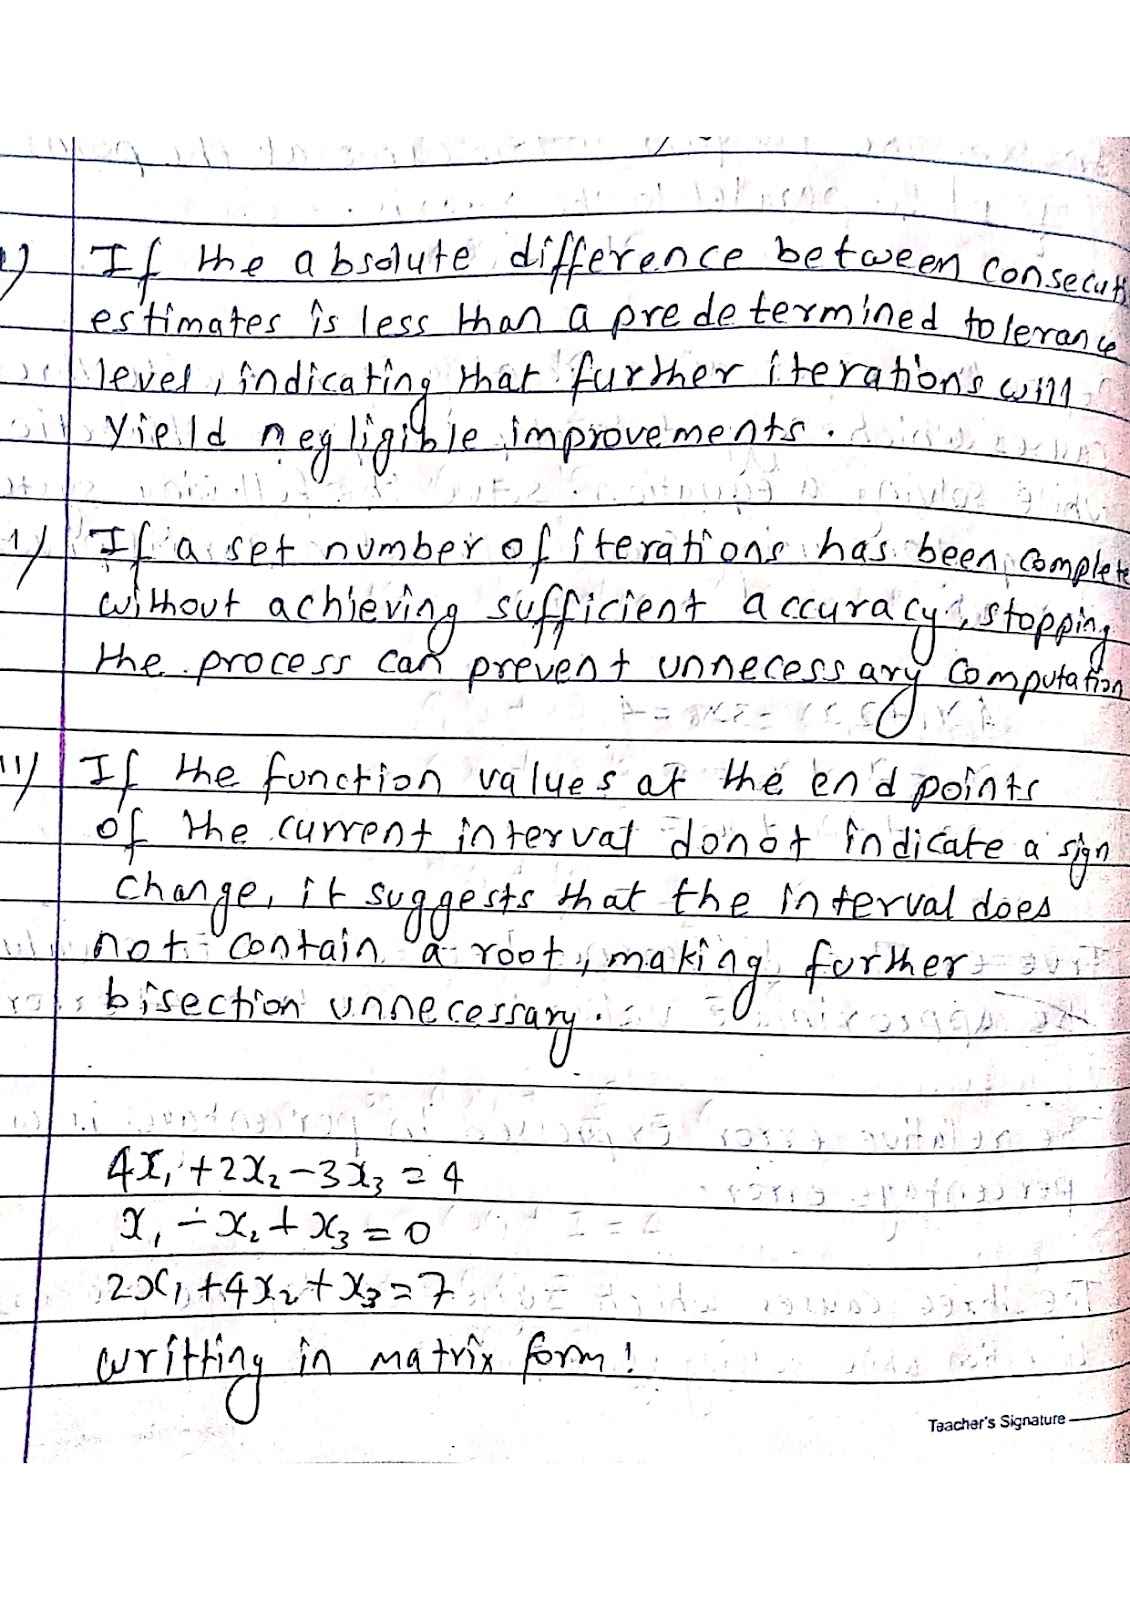 If the absolute difference between consecuti
estimates is less than a predetermined tolerance
level, indicating that further iterations will
yield negligible improvements.
If a set number of iterations has been complete
without achieving sufficient accuracy, stopping
the process can prevent unnecessary computation
If the function values at the endpoints
of the current interval donot indicate a sign
change, it suggests that the interval does
not contain a root, making further
bisection unnecessary.
4x₁+2x₂-3x₃=4
x₁-x₂+x₃=0
2x₁+4x₂+x₃=7
writting in matrix form:
Teacher's Signature